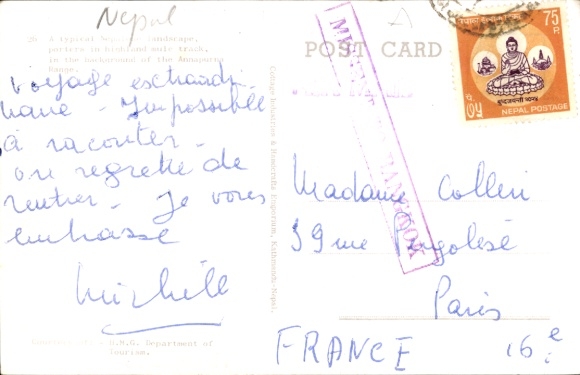 Nepal
A typical landscape,
porters in highland mule track,
in the background of the Annapurna
Range.
POST CARD
Voyage
Impossible
à raconter -
on regrette de
rentrer - Je vous
embrasse
Michèle
Cottage Industries & Handicrafts Emporium, Kathmandu-Nepal.
Department of
Tourism.
BANGKOK
75
P.
NEPAL POSTAGE
Madame Colleri
59 rue Pergolèse
Paris
16e
FRANCE